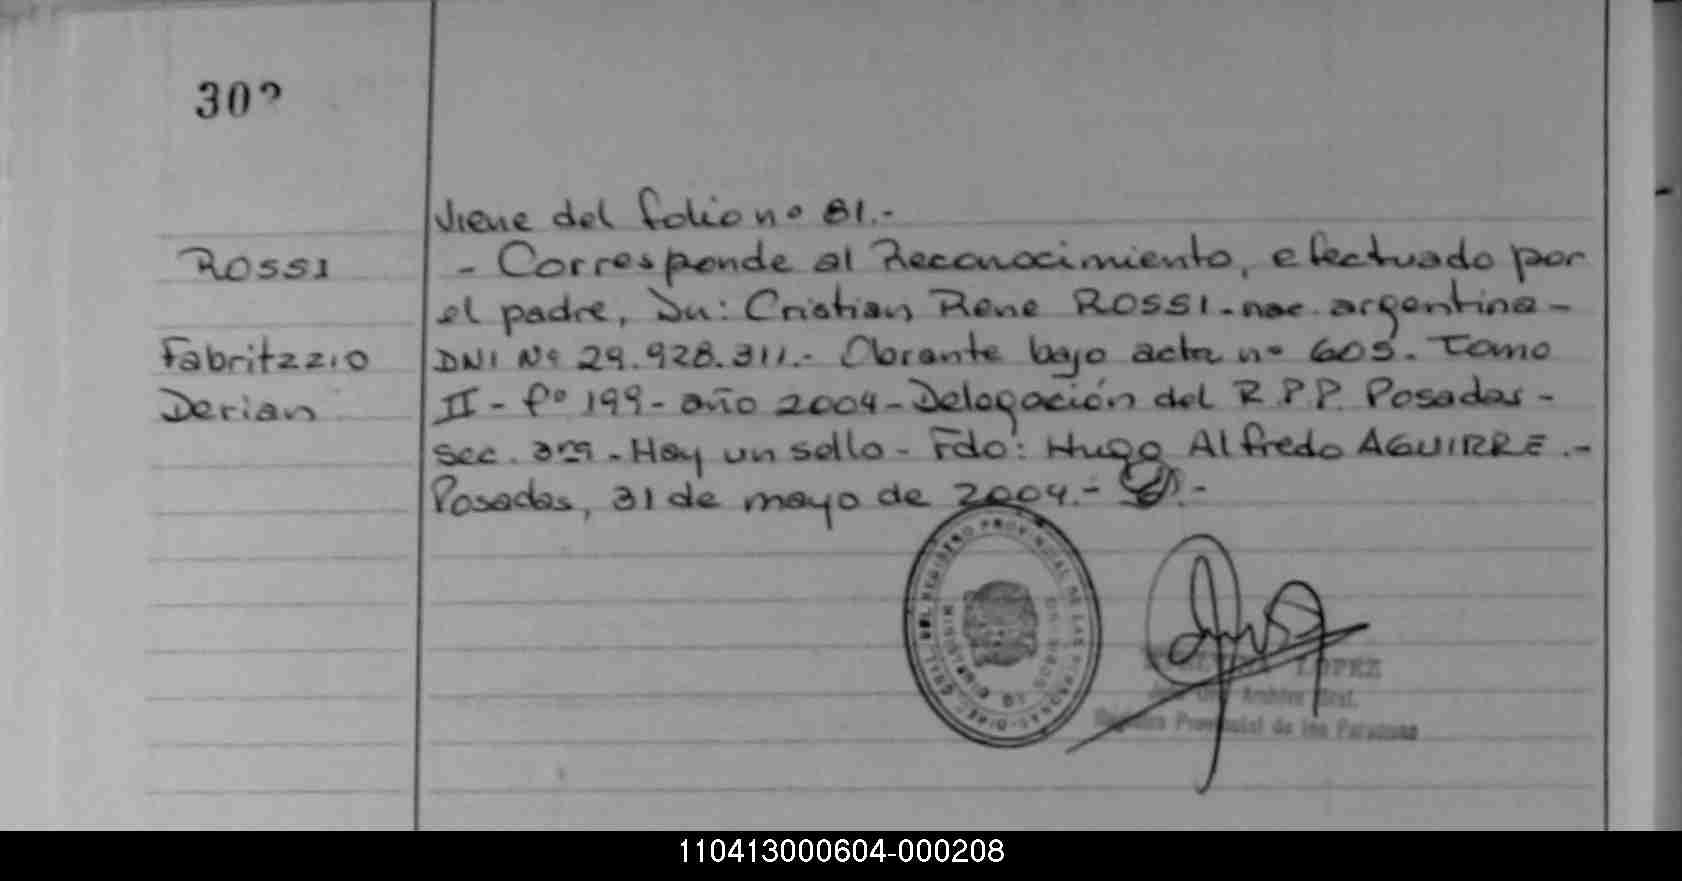 302
Viene del folio nº 81.-
ROSSI
- Corresponde al Reconocimiento, efectuado por
el padre, Dn: Cristian Rene ROSSI - nac. argentina -
Fabritzzio
DNI Nº 29.928.311.- Obrante bajo acta nº 605. Tomo
Derian
II - fº 199 - año 2004 - Delegación del R.P.P. Posadas -
sec. 3ra - Hay un sello - Fdo: Hugo Alfredo AGUIRRE.-
Posadas, 31 de mayo de 2004.-
REGISTRO PROVINCIAL DE LAS PERSONAS
LOPEZ
Archivo Gral.
Provincial de las Personas
110413000604-000208